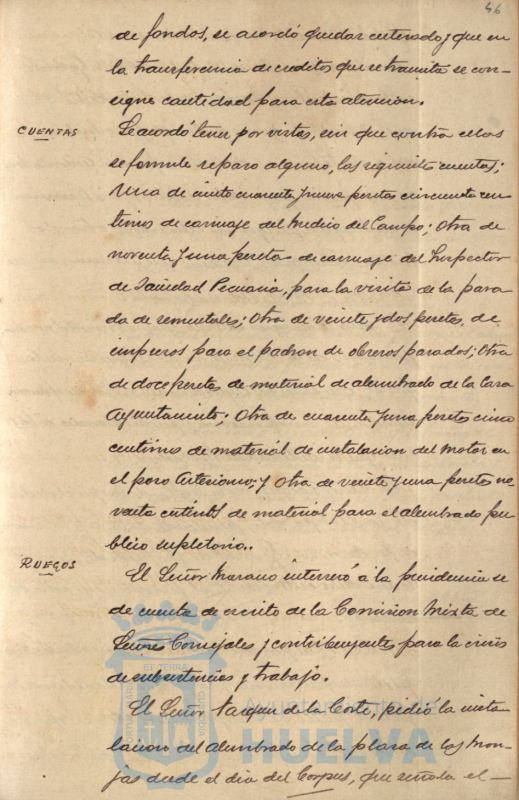 46
de fondos, se acordó quedar enterado y que en
la transferencia de creditos que se tramita se con-
signe cantidad para esta atencion.
CUENTAS
Se acordó tener por vistas, sin que contra ellas
se formule reparo alguno, las siguientes cuentas;
Una de ciento cuarenta y nueve pesetas cincuenta cen-
timos de carruaje del Medico del Campo; otra de
noventa y una pesetas de carruaje del Inspector
de Sanidad Pecuaria, para la visita de la para
da de sementales; Otra de veinte y dos pesetas, de
impresos para el padron de obreros parados; Otra
de doce pesetas de material de alumbrado de la Casa
Ayuntamiento; Otra de cuarenta y una pesetas cinco
centimos de material de instalacion del motor en
el pozo Artesiano; y otra de veinte y una pesetas no-
venta centimos de material para el alumbrado pu-
blico supletorio..
RUEGOS
El Señor Marano interesó á la presidencia se
de cuenta de escrito de la Comision Mixta de
Señores Concejales y contribuyentes para la crisis
de subsistencias y trabajo.
El Señor Vazquez de la Corte, pidió la insta
lacion del alumbrado de la plaza de las Mon-
jas desde el dia del Corpus, que señala el —
Ayuntamiento de
HUELVA